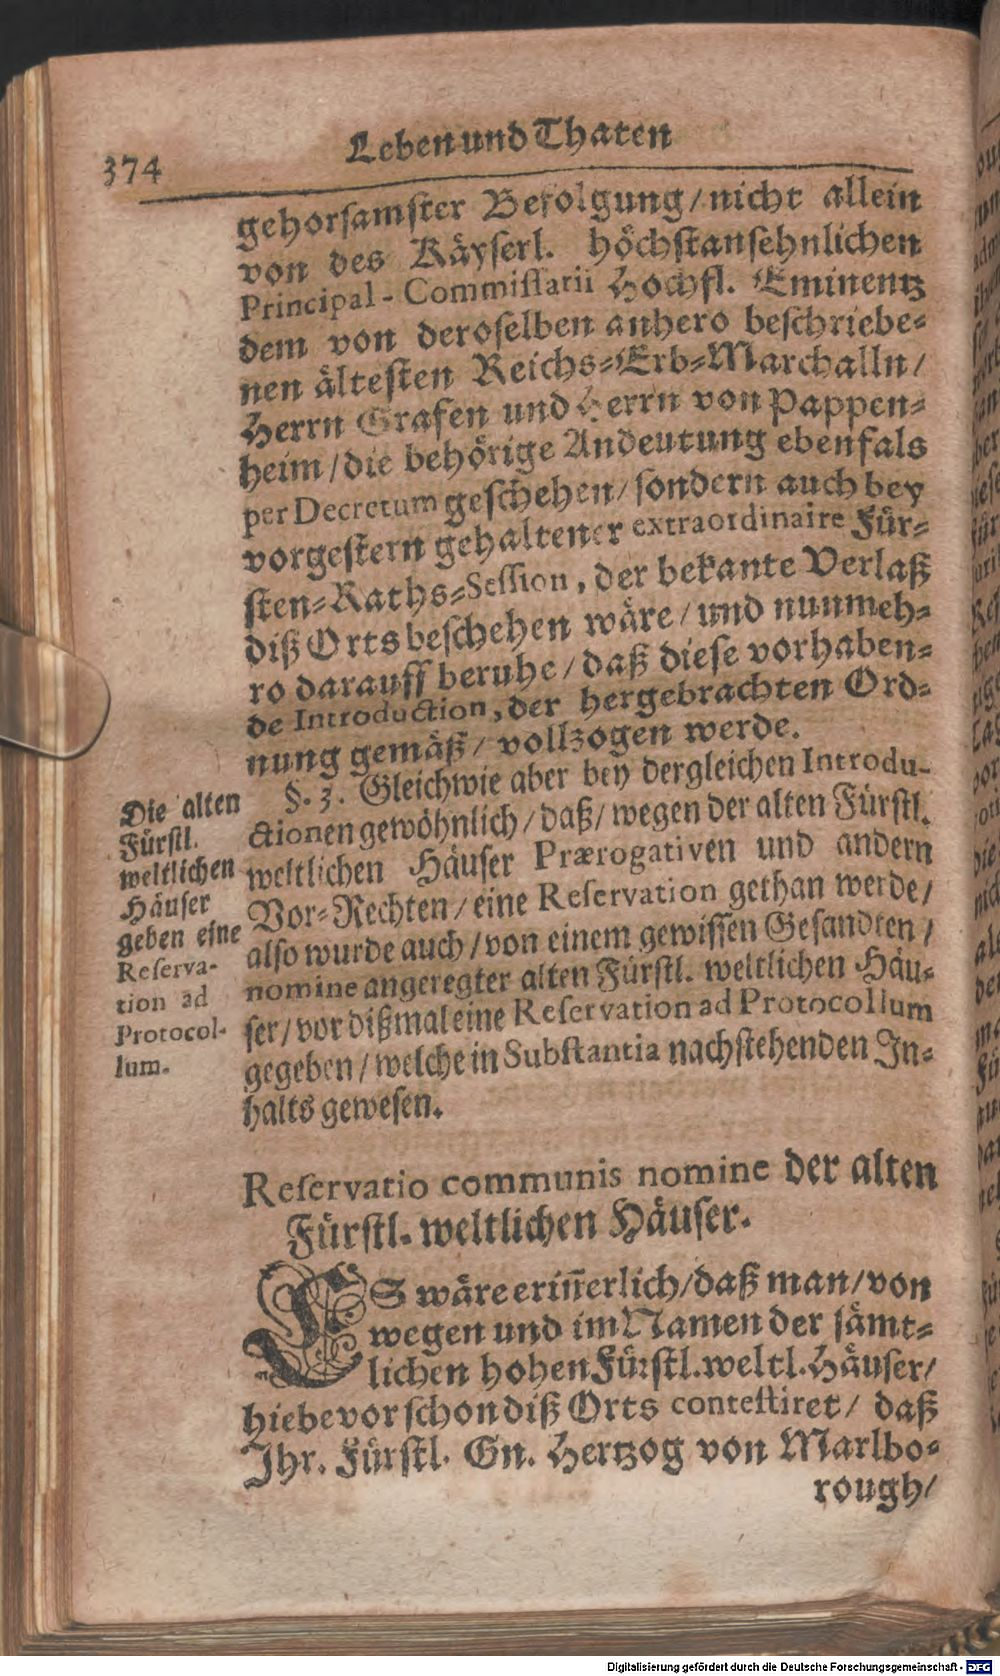 374
Leben und Thaten
gehorsamster Befolgung/ nicht allein
von des Käyserl. höchstansehnlichen
Principal-Commissarii Hochfl. Eminentz
dem von deroselben anhero beschriebe-
nen ältesten Reichs-Erb-Marchalln/
Herrn Grafen und Herrn von Pappen-
heim/ die behörige Andeutung ebenfals
per Decretum geschehen/ sondern auch bey
vorgestern gehaltener extraordinaire Für-
sten-Raths-Session, der bekante Verlaß
diß Orts beschehen wäre/ und nunmeh-
ro darauff beruhe/ daß diese vorhaben-
de Introduction, der hergebrachten Ord-
nung gemäß/ vollzogen werde.
§. 3. Gleichwie aber bey dergleichen Introdu-
ctionen gewöhnlich/ daß/ wegen der alten Fürstl.
weltlichen Häuser Prærogativen und andern
Vor-Rechten/ eine Reservation gethan werde/
also wurde auch/ von einem gewissen Gesandten/
nomine angeregter alten Fürstl. weltlichen Häu-
ser/ vor dißmal eine Reservation ad Protocollum
gegeben/ welche in Substantia nachstehenden In-
halts gewesen.
Die alten
Fürstl.
weltlichen
Häuser
geben eine
Reserva-
tion ad
Protocol-
lum.
Reservatio communis nomine der alten
Fürstl. weltlichen Häuser.
ES wäre erin̄erlich/ daß man/ von
wegen und im Namen der sämt-
lichen hohen Fürstl. weltl. Häuser/
hiebevor schon diß Orts contestiret/ daß
Ihr. Fürstl. Gn. Hertzog von Marlbo-
rough/
Digitalisierung gefördert durch die Deutsche Forschungsgemeinschaft - DFG